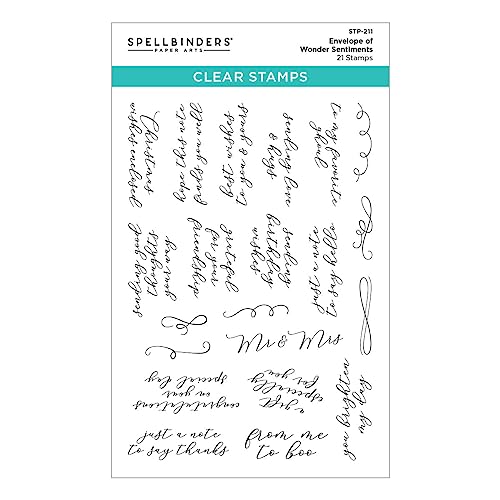 SPELLBINDERS®
PAPER ARTS
STP-211
Envelope of
Wonder Sentiments
21 Stamps
CLEAR STAMPS
Christmas
wishes enclosed
hope this note
finds you well
best wishes
to you & yours
sending love
& hugs
to my favorite
ghoul
sending
good thoughts
your way
grateful
for your
friendship
sending
birthday
wishes
just a note
to say hello
Mr & Mrs
congratulations
on your
special day
a gift
especially
for you
you brighten
my day
just a note
to say thanks
from me
to boo